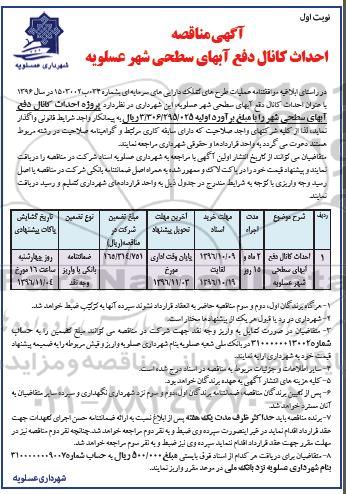 نوبت اول
آگهی مناقصه
احداث کانال دفع آبهای سطحی شهر عسلویه
شهرداری عسلویه
در راستای ابلاغیه موافقتنامه عملیات طرح های تملک دارایی های سرمایه ای بشماره ۱۵۰۳۰۰۲۰۳۳ب در سال ۱۳۹۶
با عنوان احداث کانال دفع آبهای سطحی شهر عسلویه، این شهرداری در نظر دارد پروژه احداث کانال دفع
آبهای سطحی شهر را با مبلغ برآورد اولیه ۳/۳۰۶/۲۹۵/۰۲۵ ریال به پیمانکار واجد شرایط قانونی واگذار
نماید، لذا از کلیه شرکتهای واجد صلاحیت که دارای سابقه کاری مرتبط و گواهینامه صلاحیت در رشته مربوط
هستند دعوت می گردد به واحد قراردادها و حقوقی شهرداری مراجعه نمایند.
متقاضیان می توانند از تاریخ انتشار اولین آگهی با مراجعه به شهرداری عسلویه اسناد شرکت در مناقصه را دریافت
نمایند و پیشنهاد قیمت خود را در پاکت لاک و ممهور شده به همراه اصل ضمانتنامه بانکی شرکت در مناقصه یا اصل
رسید وجه واریزی با توجه به شرایط مندرج در جدول ذیل به واحد قراردادهای شهرداری تسلیم و رسید دریافت
نمایند.
ردیف | شرح موضوع | مدت اجراء | مهلت خرید اسناد | آخرین مهلت تحویل پیشنهاد | مبلغ تضمین شرکت در مناقصه(ریال) | نوع تضمین | تاریخ گشایش پاکات پیشنهادی
۱ | احداث کانال دفع آبهای سطحی شهر عسلویه | ۲ ماه و ۱۵ روز | ۱۳۹۶/۱۰/۰۹ لغایت ۱۳۹۶/۱۰/۱۹ | پایان وقت اداری مورخ ۱۳۹۶/۱۱/۰۳ | ۱۶۵/۳۱۴/۷۵۱ | ضمانتنامه بانکی یا واریز وجه نقد | روز چهارشنبه ساعت ۱۶ مورخ ۱۳۹۶/۱۱/۰۴
۱- هرگاه برندگان اول، دوم و سوم مناقصه حاضر به انعقاد قرارداد نشوند سپرده آنها به ترتیب ضبط خواهد شد.
۲- شهرداری در رد یا قبول هر یک از پیشنهادها مختار است.
۳- متقاضیان در صورت تمایل به واریز وجه نقد جهت شرکت در مناقصه می توانند مبلغ تضمین را به حساب
شماره ۳۱۰۰۰۰۰۰۱۳۰۰۲ در بانک ملی شعبه عسلویه بنام شهرداری عسلویه واریز و فیش مربوطه را به ضمیمه پیشنهاد
قیمت خود به شهرداری ارایه نمایند.
۴- سایر اطلاعات و جزئیات مربوط به مناقصه در اسناد درج شده است.
۵- کلیه هزینه های انتشار آگهی به عهده برندگان خواهد بود.
۶- پس از تعیین برندگان مناقصه، ضمانتنامه برندگان اول، دوم و سوم نزد شهرداری نگهداری و سپرده سایر متقاضیان به
آنان مسترد خواهد شد.
۷- برنده مناقصه باید حداکثر ظرف مدت یک هفته پس از ابلاغ نسبت به ارائه ضمانتنامه حسن اجرای تعهدات جهت
عقد قرارداد اقدام نماید در غیر اینصورت سپرده وی ضبط و به نفر دوم مراجعه خواهد شد. چنانچه نفر دوم مناقصه نیز در
مهلت مقرر جهت عقد قرارداد اقدام ننماید سپرده وی نیز ضبط و به نفر سوم مراجعه خواهد شد.
۸- متقاضیان برای دریافت هر کدام از اسناد فوق بایستی مبلغ ۵۰۰/۰۰۰ ریال به حساب شماره ۳۱۰۰۰۰۰۰۰۹۰۰۷
بنام شهرداری عسلویه نزد بانک ملی در موعد مقرر واریز نمایند.
شهرداری عسلویه